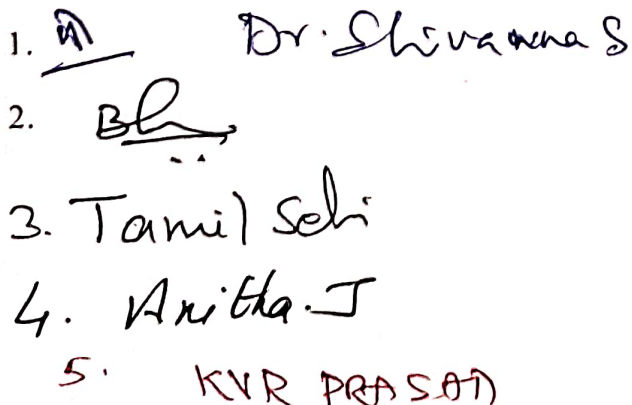 1. Dr. Shivanna S
2.
3. Tamil Selvi
4. Anitha. J
5. KVR PRASAD